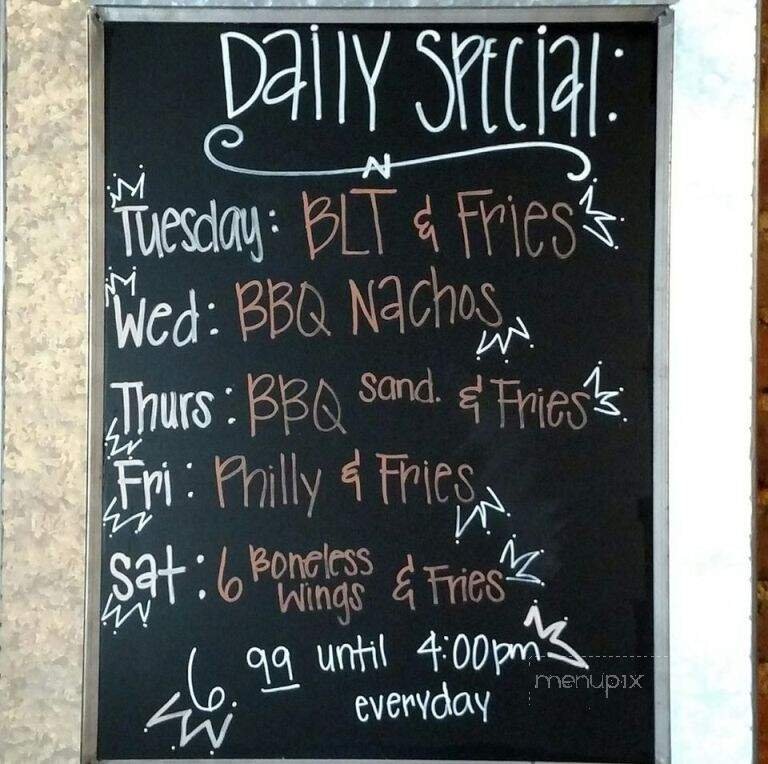 Daily Special:
Tuesday: BLT & Fries
Wed: BBQ Nachos
Thurs: BBQ Sand. & Fries
Fri: Philly & Fries
Sat: 6 Boneless Wings & Fries
6.99 until 4:00pm
everyday
menupix